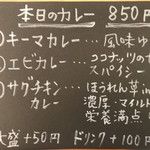 本日のカレー 850円
①キーマカレー…風味ゆ
②エビカレー…ココナッツの
スパイシー
③サグチキンカレー…ほうれん草in
濃厚・マイルド
栄養満点
大盛+50円 ドリンク+100円